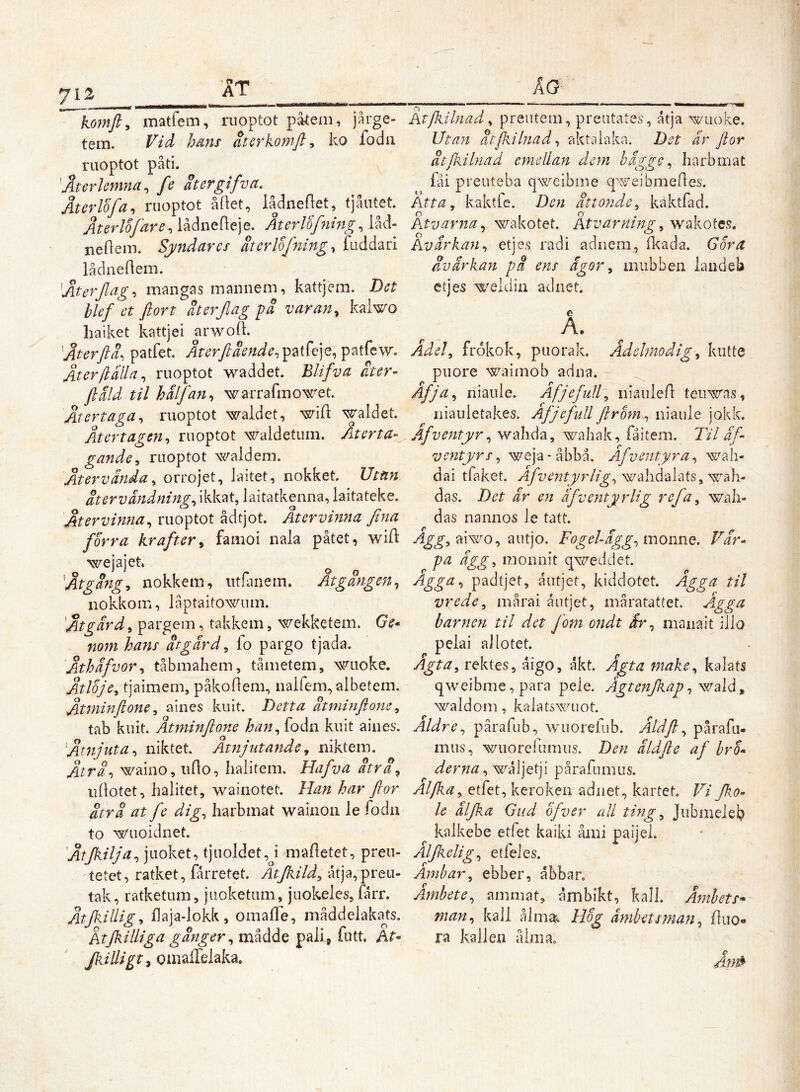 712
ÅT
ÅG
komſt, matſem, ruoptot påtem, jårge-
tem. Vid hans återkomſt, ko ſodn
ruoptot påti.
Återlemna, ſe återgifva.
Återlöſa, ruoptot åſtet, lådneſtet, tjåutet.
Återlöſare, lådneſteje. Återlöſning, låd-
neſtem. Syndares återlöſning, ſuddari
lådneſtem.
Återſlag, mangas mannem, kattjem. Det
blef et ſtort återſlag på varan, kalwo
haiket kattjei arwoſt.
Återſtå, patſet. Återſtående, patſeje, patſew.
Återſtälla, ruoptot waddet. Blifva åter-
ſtäld til hälſan, warraſmowet.
Återtaga, ruoptot waldet, wiſt waldet.
Återtagen, ruoptot waldetum. Återta-
gande, ruoptot waldem.
Återvända, orrojet, laitet, nokket. Utan
återvändning, ikkat, laitatkenna, laitateke.
Återvinna, ruoptot ådtjot. Återvinna ſina
förra krafter, ſamoi nala påtet, wiſt
wejajet.
Åtgång, nokkem, utſanem. Åtgången,
nokkom, låptaitowum.
Åtgärd, pargem, takkem, wekketem. Ge-
nom hans åtgärd, ſo pargo tjada.
Åthäfvor, tåbmahem, tåmetem, wuoke.
Åtlöje, tjaimem, påkoſtem, nalſem, albetem.
Åtminſtone, aines kuit. Detta åtminſtone,
tab kuit. Åtminſtone han, ſodn kuit aines.
Åtnjuta, niktet. Åtnjutande, niktem.
Åtrå, waino, uſto, halitem. Hafva åtrå,
uſtotet, halitet, wainotet. Han har ſtor
åtrå at ſe dig, harbmat wainon le ſodn
to wuoidnet.
Åtſkilja, juoket, tjuoldet, i maſtetet, preu-
tetet, ratket, ſårretet. Åtſkild, åtja, preu-
tak, ratketum, juoketum, juokeles, ſårr.
Åtſkillig, ſlaja-lokk, omaſſe, måddelakats.
Åtſkilliga gånger, mådde pali, ſutt. Åt-
ſkilligt, omaſſelaka.
Åtſkilnad, preutem, preutates, åtja wuoke.
Utan åtſkilnad, aktalaka. Det är ſtor
åtſkilnad emellan dem bägge, harbmat
ſåi preuteba qweibme qweibmeſtes.
Åtta, kaktſe. Den åttonde, kaktſad.
Åtvarna, wakotet. Åtvarning, wakotes.
Åvärkan, etjes radi adnem, ſkada. Göra
åvärkan på ens ägor, mubben landeb
etjes weldin adnet.
Ä.
Ädel, frökok, puorak. Ädelmodig, kutte
puore waimob adna.
Äfja, niaule. Äfjefull, niauleſt teuwas,
niauletakes. Äfjefull ſtröm, niaule jokk.
Äfventyr, wahda, wahak, ſåitem. Til äf-
ventyrs, weja-åbbå. Äfventyra, wah-
dai tſaket. Äfventyrlig, wahdalats, wah-
das. Det är en äfventyrlig reſa, wah-
das nannos le tatt.
Ägg, aiwo, autjo. Fogel-ägg, monne. Vär-
pa ägg, monnit qweddet.
Ägga, padtjet, åutjet, kiddotet. Ägga til
vrede, mårai åutjet, måratattet. Ägga
barnen til det ſom ondt är, manait illo
pelai allotet.
Ägta, rektes, åigo, åkt. Ägta make, kalats
qweibme, para pele. Ägtenſkap, wald,
waldom, kalatswuot.
Äldre, påraſub, wuoreſub. Äldſt, påraſu-
mus, wuoreſumus. Den äldſte af brö-
derna, wåljetji påraſumus.
Älſka, etſet, keroken adnet, kartet. Vi ſko-
le älſka Gud öfver all ting, Jubmeleb
kalkebe etſet kaiki åmi paijel.
Älſkelig, etſeles.
Ämbar, ebber, åbbar.
Ämbete, ammat, åmbikt, kall. Ämbets-
man, kall ålma. Hög ämbetsman, ſtuo-
ra kallen ålma.